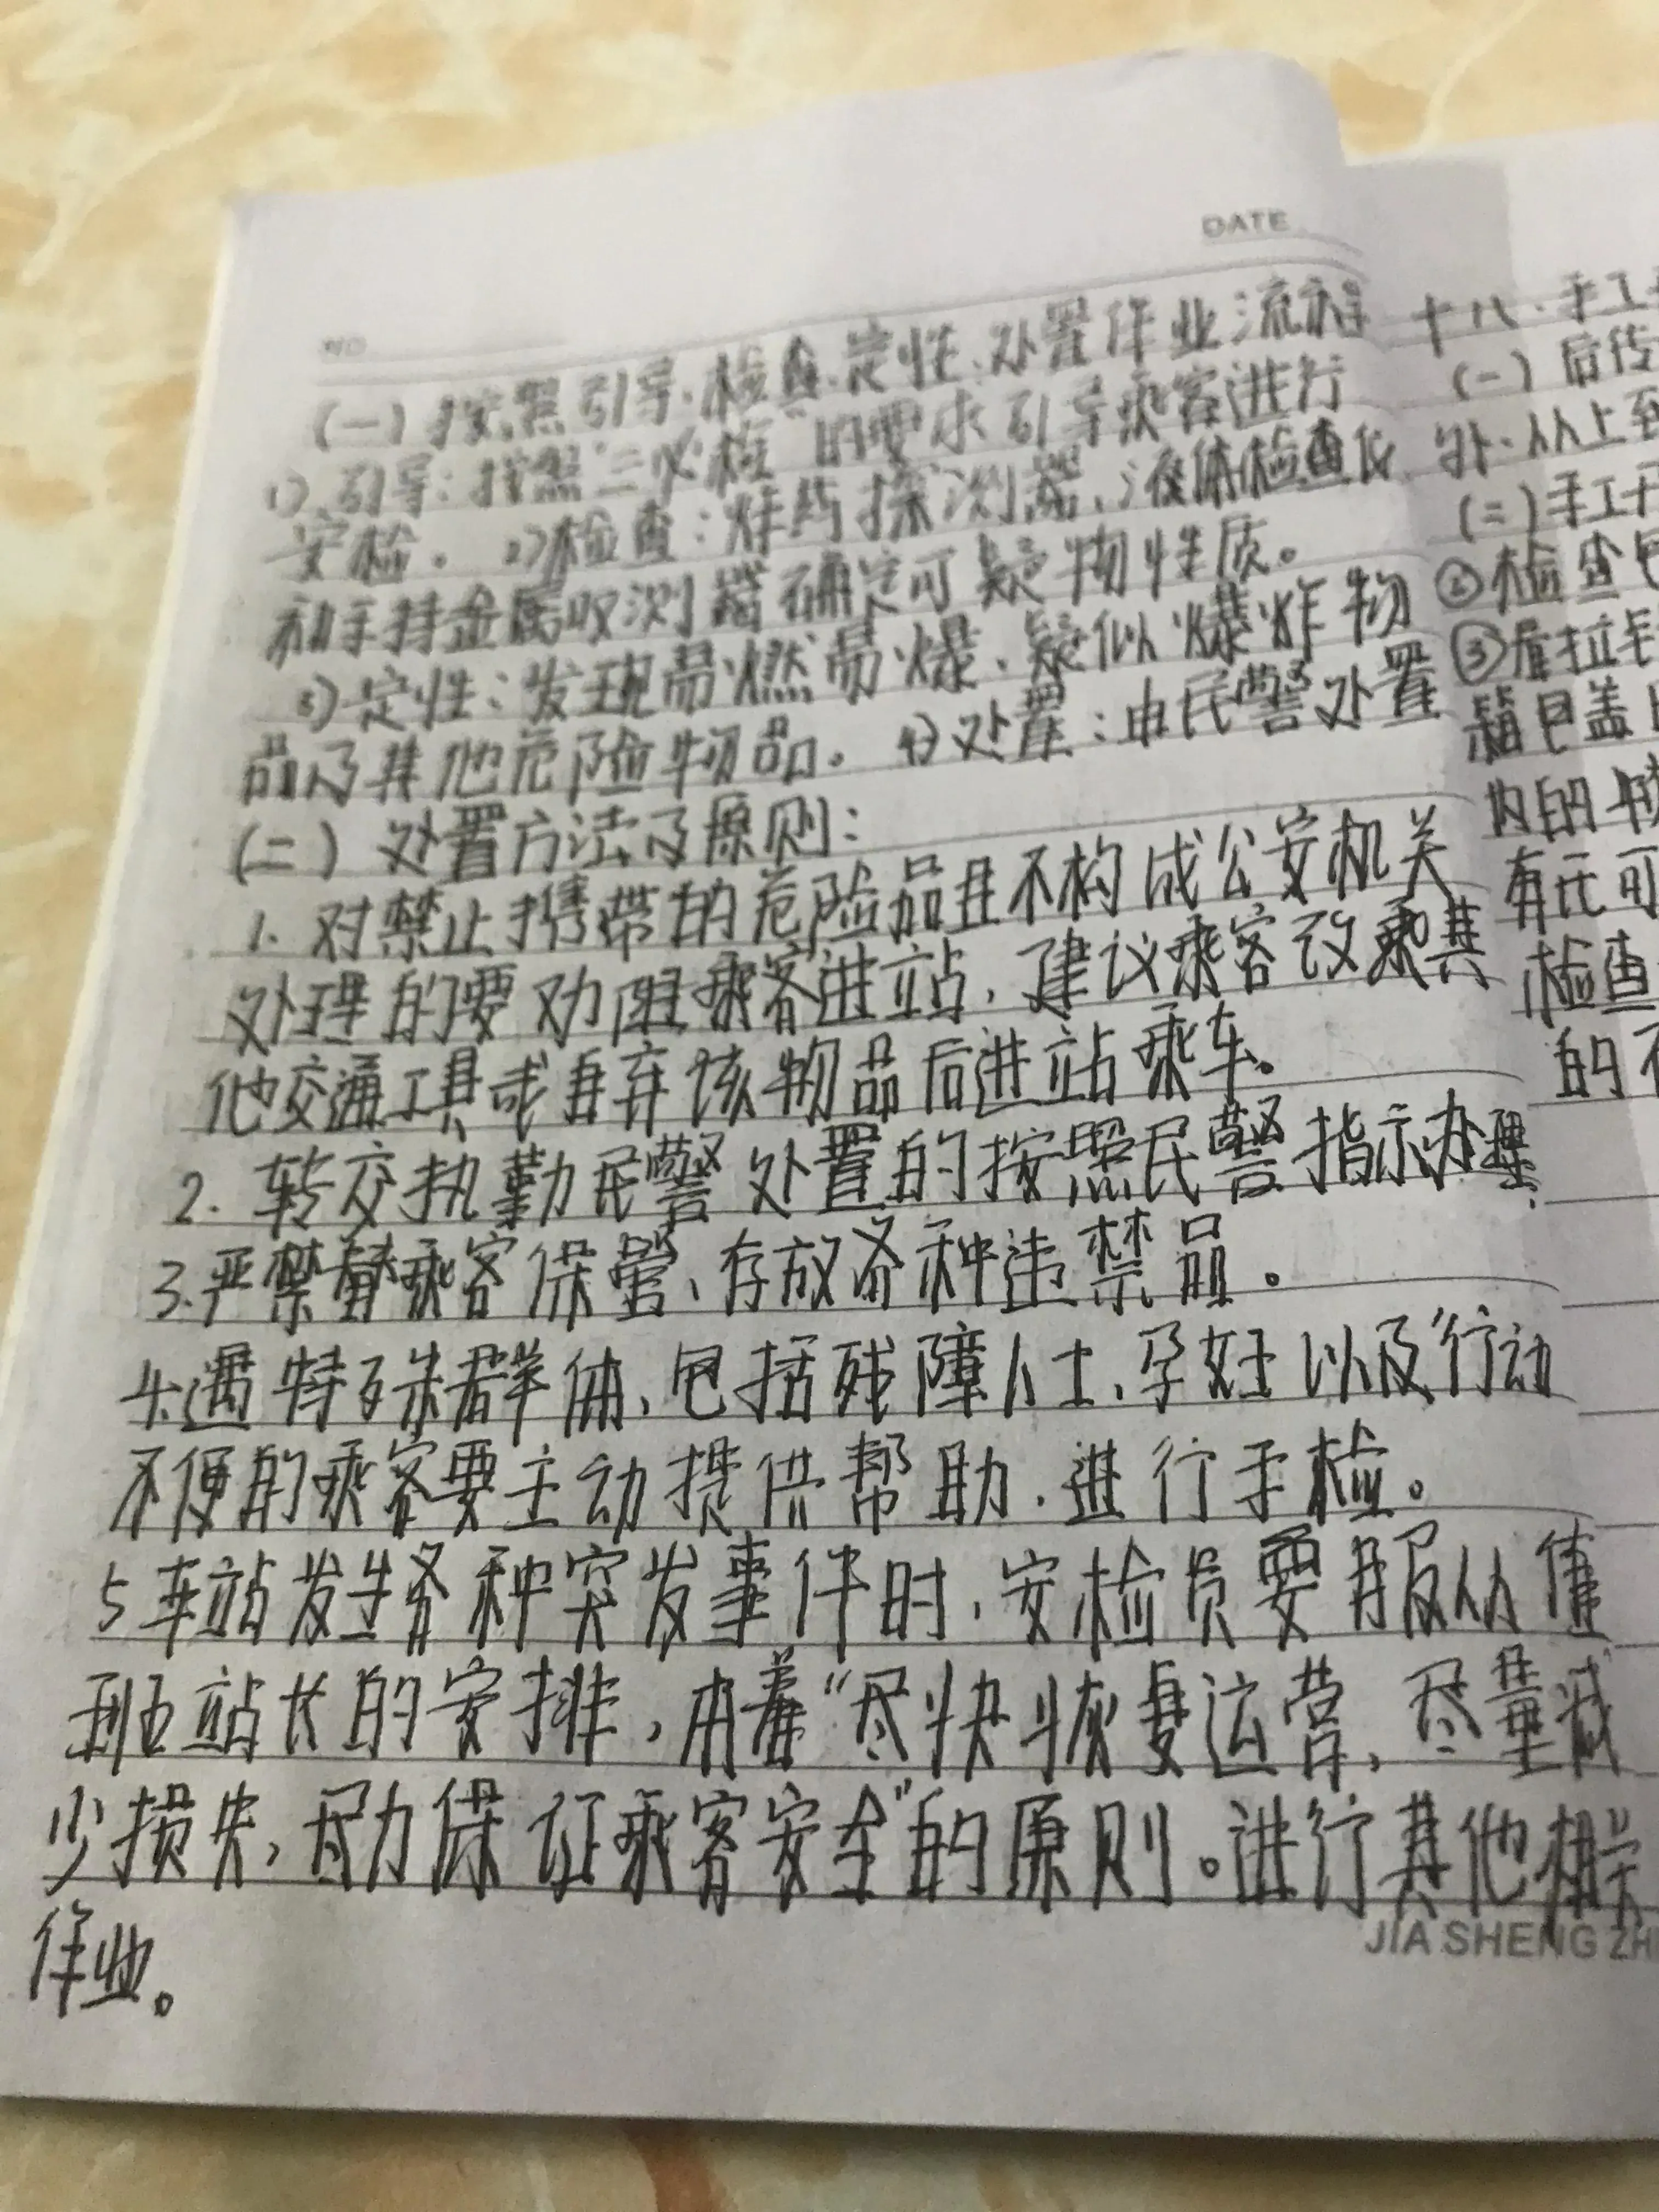 DATE
NO
(一)按照引导、检查、定性、处置作业流程
1)、引导:按照“三必检”的要求引导乘客进行
安检。2)检查:炸药探测器、液体检查仪
和手持金属收测器确定可疑物性质。
3)定性:发现易燃易爆、疑似爆炸物
品及其他危险物品。4)处置:由民警处置
(二)处置方法及原则:
1.对禁止携带的危险品且不构成公安机关
处理的要劝阻乘客进站,建议乘客改乘其
他交通工具或自弃该物品后进站乘车。
2.转交执勤民警处置的按照民警指示办理.
3.严禁替乘客保管、存放各种违禁品。
4.遇特殊群体,包括残障人士、孕妇以及行动
不便的乘客要主动提供帮助,进行手检。
5车站发生各种突发事件时,安检员要服从值
班站长的安排,本着“尽快恢复运营,尽量减
少损失,尽力保证乘客安全”的原则。进行其他相关
作业。
JIA SHENG ZH
十八.手工
(一)后传
外、从上到
(二)手工开
②检查包
③雇拉毛
箱包盖
内的
有无可
检查
的不